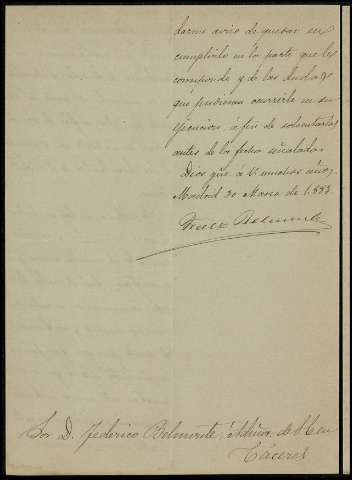 darme aviso de quedar en
cumplirlo en la parte que le
corresponde y de las dudas
que pudieran ocurrirle en su
ejecucion, á fin de solventarlas
antes de la fecha señalada.
Dios gue. á V. muchos años.
Madrid 30 Marzo de 1883.
Belmonte
Sor. D. Federico Belmonte, de
Cáceres